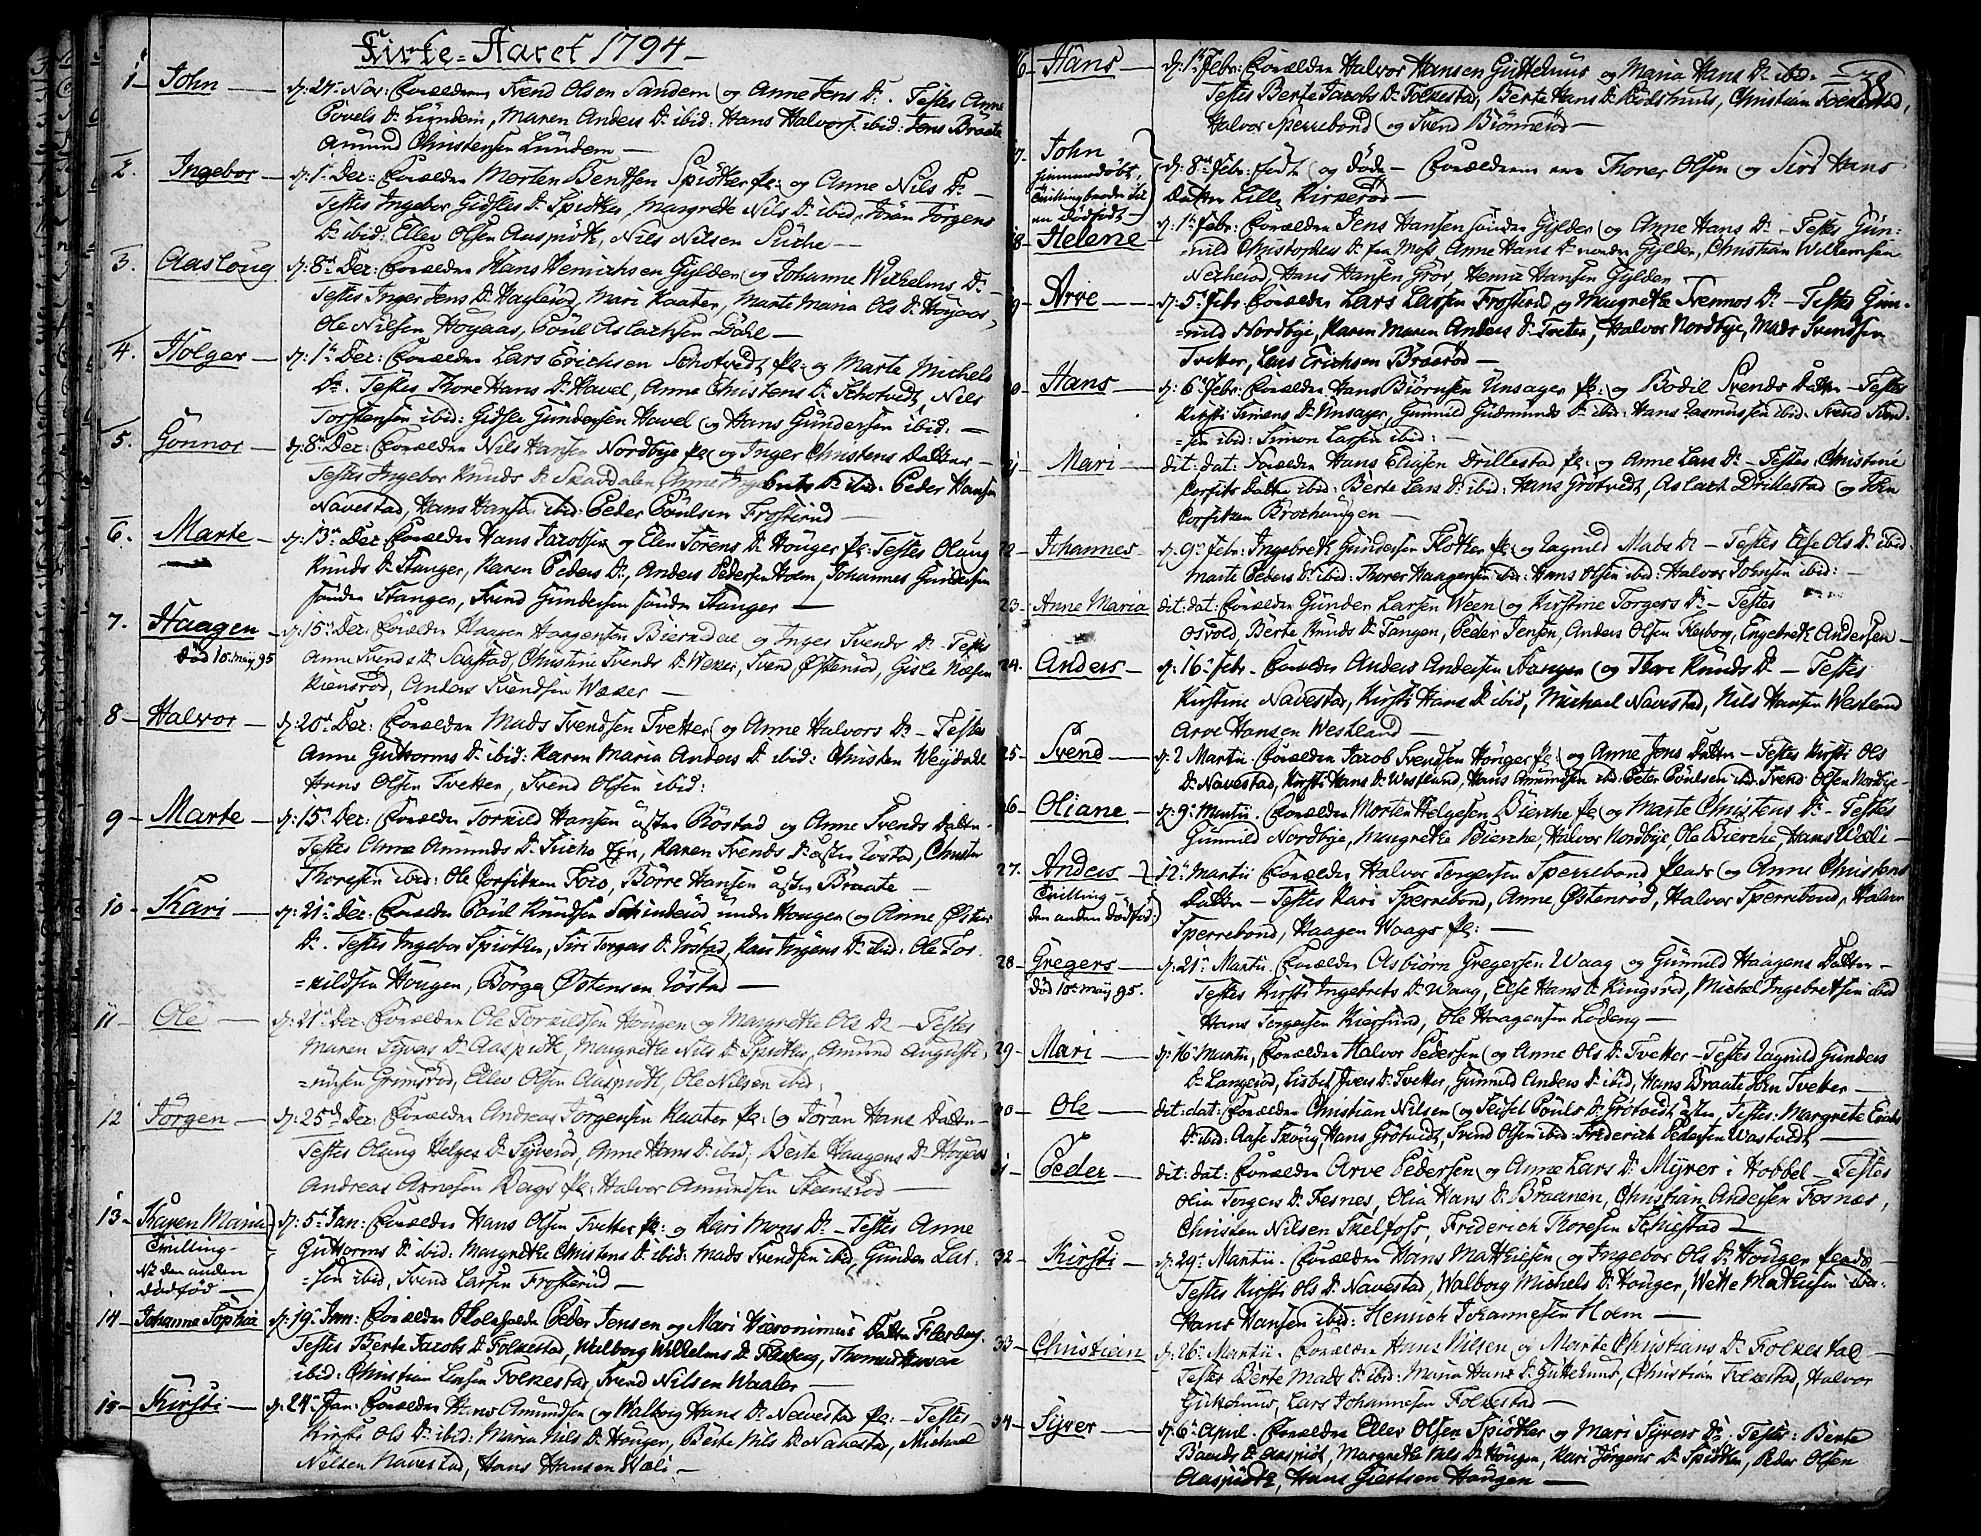 Kirke-Aaret 1794
1 John d: 24 Nov: Forældre Svend Olsen Sandem og Anne Jens Dr. Testes Anne
Povels Dr Lundem, Maren Anders Dr ibid: Hans Halvors: ibid: Jens Braate
Amund Christensen Lundem
2. Ingebor d: 1 Dec: Forældre Morten Bentsen Spiötker pl: og Anne Nils Dr
Testes Ingebor Gisles Dr Spiötker, Margrete Nils Dr ibid, Jöran Jörgens
Dr ibid: Ellev Olsen Aaspiötk, Nils Nilsen
3. Aasloug d: 8 Dec: Forældre Hans Henrichsen Gylder og Johanne Wilhelms Dr
Testes Inger Jens Dr, Mari Kaater, Marte Maria Ols Dr Höyaas,
Ole Nilsen Höyaas, Poul Aslachsen Dahl
4. Holger d: 1 Dec: Forældre Lars Erichsen Schotvedt pl: og Marte Michels
Dr: Testes Thore Hans Dr Havel, Anne Christens Dr Schotvedt, Nils
Torstensen ibid: Gisle Gundersen Havel og Hans Gundersen ibid:
5. Gonnor d: 8 Dec: Forældre Nils Hansen Nordbye pl: og Inger Christens Datter
Testes Ingebor Knuds Dr Skaddalen Anne Ingebrets Dr ibid. Peder Hansen
Navestad, Hans Hansen ibid: Peder Poulsen Frosterud
6. Marte d: 13 Dec Forældre Hans Jacobsen og Ellen Sörens Dr Houger pl: Testes Olaug
Knuds Dr Stanger, Karen Peders Dr, Anders Pedersen Holm, Johannes Gundersen
söndre Stanger, Svend Gundersen söndre Stanger
7. Haagen d: 15 Dec: Forældre Haagen Haagensen Bierndal og Inger Svends Dr Testes
död 10 may 95 Anne Svends Dr Saastad, Christine Svends Dr Waker, Svend Östenrod, Gisle Nilsen
Kiensröd, Anders Svendsen Waker
8 Halvor d: 20 Dec: Forældre Mads Svendsen Tvetter og Anne Halvors Dr Testes
Anne Guttorms Dr ibid: Karen Maria Anders Dr ibid: Christen
Hans Olsen Tvetter, Svend Olsen ibid:
9 Marte d: 15 Dec: Forældre Torkild Hansen östre Röstad og Anne Svends Datter
Testes Anne Amunds Dr, Karen Svends Dr östre Röstad, Christen
Thoresen ibid: Ole Corfitzen Foss, Börre Hansen östre Braate
10 Kari d: 21 Dec: Forældre Poul Knudsen under Hougen og Anne Östens
Dr. Testes Ingebor Spiötker, Siri Torgers Dr Röstad, Kari Jörgens Dr ibid: Ole Tor-
=kildsen Hougen, Börge Östensen Röstad
11 Ole d: 21 Dec: Forældre Ole Torkildsen Hougen og Margrethe Ols Dr Testes
Maren Syvers Dr Aaspiötk, Margrethe Nils Dr Spiötker, Amund Augusti-
=nusen Grimsröd, Ellev Olsen Aaspiötk, Ole Nilsen ibid:
12 Jörgen d: 25 Dec: Forældre Andreas Jörgensen Klaater pl: og Jöran Hans Datter
Testes Olaug Helges Dr Syveröd, Anne Hans Dr ibid, Berte Haagens Dr Höyaas
Andreas Arnesen pl: Halvor Amundsen Steensröd
13 Karen Maria d: 5 Jan: Forældre Hans Olsen Tvetter pl: og Kari Mons Dr Testes Anne
Tvilling Guttorms Dr ibid: Margrethe Christens Dr ibid: Mads Svendsen ibid, Gunder Lar-
NB den anden =sen ibid, Svend Larsen Frosterud
dödföd
14 Johanne Sophia d: 19 Jan: Forældre Skoleholder Peder Jensen og Mari Hieronimus Datter Flesberg
Testes Berte Jacobs Dr Folkestad, Walborg Willhelms Dr Flesberg, Thomas Hansen
ibid: Christian Larsen Folkestad, Svend Nilsen Waaler
15 Kirsti d: 24 Jan: Forældre Hans Amundsen og Walborg Hans Dr Navestad pl: Testes
Kirsti Ols Dr ibid: Maria Nils Dr Houger, Berte Nils Dr Navestad, Michael
Nilsen Navestad, Hans Hansen Wæli
38
16 Hans d: 1 Febr: Forældre Halvor Hansen Guttehuus og Maria Hans Dr ibid.
Testes Berte Jacobs Dr Folkestad, Berte Hans Dr Bodshuus, Christian Folkestad,
Halvor Sperrebond og Svend Brönneröd
17. John d: 8 Febr: födt og döde Forældrene ere Thorer Olsen og Siri Hans
hjemmedöbt, Datter Lille Kirkeröd
Tvillingbarnet til
en dödfödt
18 Helene d: 1 Febr: Forældre Jens Hansen söndre Gylder og Anne Hans Dr Testes Gun-
=nild Christophers Dr fra Moss Anne Hans Dr nordre Gylder, Christian Willumsen
Hans Hansen Grov, Henric Hansen Gylder
19 Arve d: 5 Febr Forældre Lars Larsen Frosterud og Margrethe Svennos Dr Testes Gun-
=nild Nordbye, Karen Maren Anders Dr Tvetter, Halvor Nordbye, Mads Svendsen
Tvetter, Lars Erichsen Braröd
20 Hans d: 6 Febr: Forældre Hans Biörnsen Unsager pl: og Bodil Svends Datter Testes
Kirsti Simens Dr Unsager, Gunnild Gudmunds Dr ibid: Hans Rasmussen ibid: Svend Svend-
=sen ibid: Simon Larsen ibid:
21 Mari dit: dat: Forældre Hans Eliasen Drillestad pl: og Anne Lars Dr Testes Christine
Corfits Datter ibid: Berte Lars Dr ibid: Hans Grötvedt, Aslach Drillestad og John
Corfitzen Brochaugen
22 Johannes d: 9 Febr: Ingebreth Gundersen Flötker pl: og Ragnild Mads Dr Testes Else Ols Dr ibid.
Marte Peders Dr ibid: Thorer Haagensen ibid: Hans Olsen ibid: Halvor Johnsen ibid:
23 Anne Maria dit: dat: Forældre Gunder Larsen Ween og Kirstine Torgers Dr Testes
Osvold, Berte Knuds Dr Tangen, Peder Jensen, Anders Olsen, Engebreth Andersen
24. Anders d: 16 Febr. Forældre Anders Andersen Haugen og Thore Knuds Dr Testes
Kirstine Navestad, Kirsti Hans Dr ibid, Michael Navestad, Nils Hansen Westlund
Arve Hansen Westlund
25 Svend d: 2 Martii Forældre Jacob Svendsen Houger pl: og Anne Jens Datter Testes Kirsti Ols
Dr Navestad, Kirsti Hans Dr Westlund, Hans Amundsen ibid: Peter Poulsen ibid: Svend Olsen Nordbye
26. Oliane d: 9 Martii Forældre Morten Helgesen Bierche pl: og Marte Christens Dr Testes
Gunnild Nordbye, Margrethe Bierche, Halvor Nordbye, Ole Bierche, Hans Wæli
27. Anders 12 Martii Forældre Halvor Torgersen Sperrebond plads og Anne Christens
Tvilling Datter Testes Kari Sperrebond, Anne Östenröd, Halvor Sperrebond, Halvor
den anden dödföd: Sperrebond, Haagen Waags pl:
28 Gregers d: 21 Martii. Forældre Asbiörn Gregersen Waag og Gunnild Haagens Datter
död 10 may 95. Testes Kirsti Ingebrets Dr Waag, Else Hans Dr Kingsröd, Michel Ingebretsen ibid
Hans Torgersen, Ole Haagensen Lödeng
29 Mari d: 16 Martii, Forældre Halvor Pedersen og Anne Ols Dr Tvetter Testes Ragnild Gunders
Dr Langeröd, Lisbet Ivers Dr Tvetter, Gunnild Anders Dr ibid, Hans Braate John Tvetter
30 Ole dit: dat: Forældre Christian Nilsen og Sidsel Pouls Dr Grötvedt östre, Testes: Margrete Erichs
Dr ibid: Aase Skoug, Hans Grötvedt, Svend Olsen ibid: Friderich Pedersen Wastvedt
31 Peder dit: dat: Forældre Arve Pedersen og Anne Lars Dr Myrer i Hobbel Testes
Olia Torgers Dr Fesnes, Olia Hans Dr Braanen, Christian Andersen Fosnæs,
Christen Nilsen Skelfoss, Friderich Thoresen
32 Kirsti d: 29 Martii. Forældre Hans Mathiesen og Ingebor Ols Dr Houger plads
Testes Kirsti Ols Dr Navestad, Walborg Michels Dr Houger, Wette Mathiesen ibid.
Hans Hansen ibid: Henrich Johannesen Holm
33 Christian d: 26 Martii. Forældre Hans Nilsen og Marite Christians Dr Folkestad
Testes Berte Mads Dr ibid: Maria Hans Dr Guttehuus, Christian Folkestad, Halvor
Guttehuus, Lars Johannesen Folkestad
34 Syver d: 6 April. Forældre Ellev Olsen Spiötker og Mari Syvers Dr. Testes: Berte
Baards Dr Aaspiöt, Margrethe Nils Dr Hougen, Kari Jörgens Dr Spiötker, Peder Olsen
Aaspiötk, Hans Giertsen Hougen